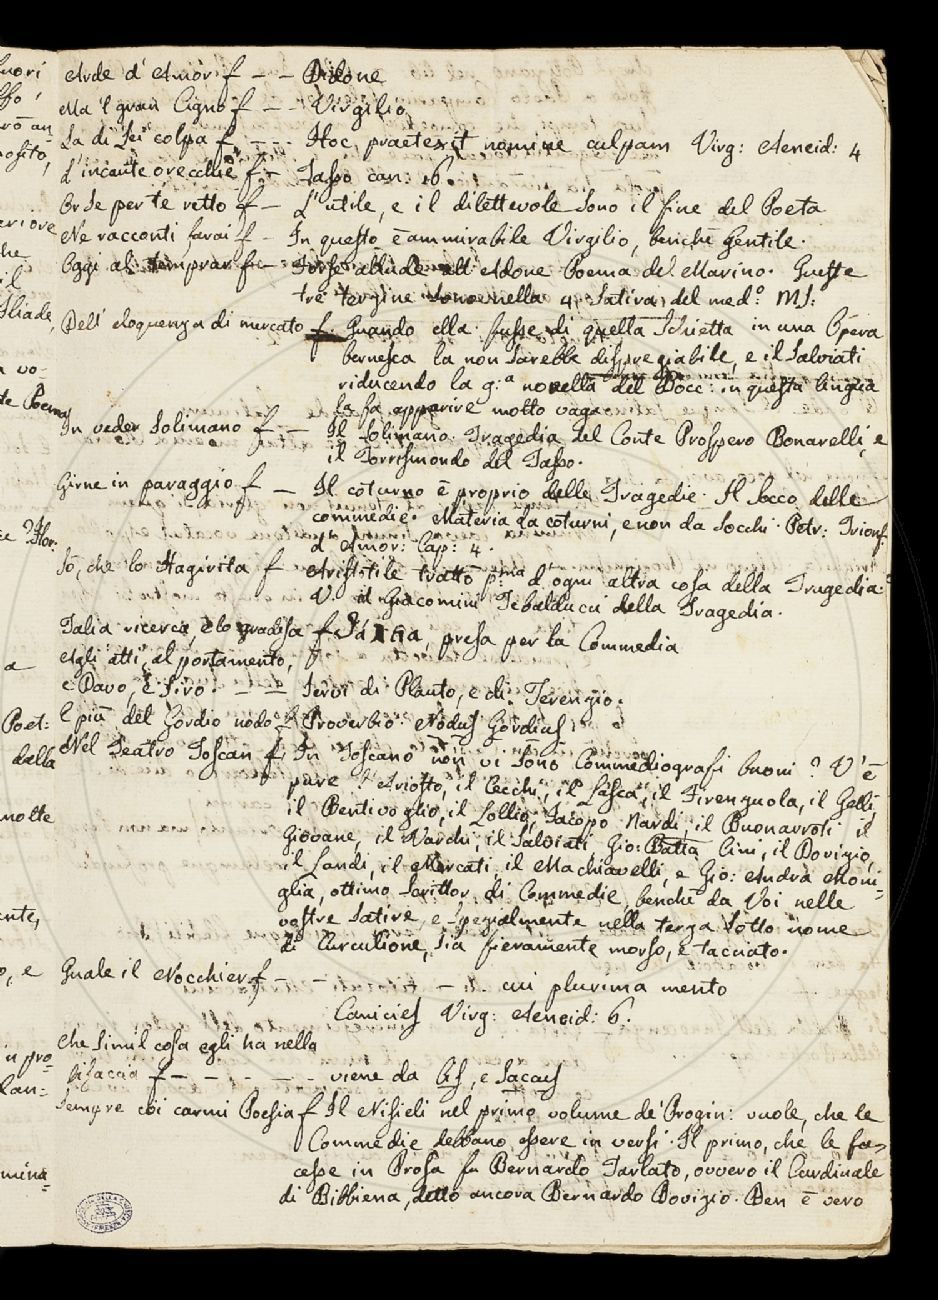 Arde d' Amor f — — Didone
Ma 'l gran Cigno f — — Virgilio
La di Lei colpa f — — Hoc praetexit nomine culpam Virg: Aeneid: 4
L'incaute orecchie f — Tasso can: 16.
Or se per te retto f — L'utile, e il dilettevole sono il fine del Poeta
Ne racconti farai f — In questo è ammirabile Virgilio, benche Gentile.
Oggi al temprar f — Forse allude all' Adone Poema del Marino. Queste
tre tergine sono nella 4 Satira del med.º MS:
Dell' eloquenza di mercato f. Quando ella fusse di quella schietta in una Opera
bernesca la non sarebbe disspregiabile, e il Salviati
riducendo la g:ª novella del Bocc: in questa lingua
la fa apparire molto vaga
In veder Solimano f — Il Solimano Tragedia del Conte Prospero Bonarelli, e
il Torrismondo del Tasso.
Girne in paraggio f — Il coturno è proprio delle Tragedie. Il Socco delle
commedie. Materia da coturni, e non da Socchi. Petr: Trionf.
d' Amor: Cap: 4.
Sò, che lo Stagirita f Aristotile trattò p:ma d'ogni altra cosa della Tragedia.
V. il Giacomini Tebalducci della Tragedia.
Talia ricerca, e lo gradisa f Talia, presa per la Commedia
Agli atti, al portamento,
e Davo, e Siro. — — Servi di Plauto, e di Terenzio.
E più del Gordio nodo f Proverbio Nodus Gordius
Nel Teatro Toscan f In Toscano non vi sono Commediografi buoni? V'è
pure l'Ariosto, il Cecchi, il Lasca, il Firenguola, il Gelli,
il Bentivoglio, il Lollio, Jacopo Nardi, il Buonarroti il
Giovane, il Varchi, il Salviati Gio: Batta Cini, il Dovizio,
il Landi, il Mercati, il Machiavelli, e Gio: Andrà Moni=
glia, ottimo scrittor di Commedie, benche da Voi nelle
vostre Satire, e spezialmente nella terza sotto nome
di Curculione, sia fieramente morso, e tacciato.
Quale il Nocchier f — — — cui plurima mento
Canicies Virg: Aeneid: 6.
Che simil cosa egli ha nella
bisaccia f — — — — — viene da bis, e saccus
Sempre coi carmi Poesia f Il Nisieli nel primo volume de' Progin: vuole, che le
Commedie debbano essere in versi. Il primo, che le fa=
cesse in Prosa fu Bernardo Tarlato, ovvero il Cardinale
di Bibbiena, detto ancora Bernardo Dovizio. Ben è vero